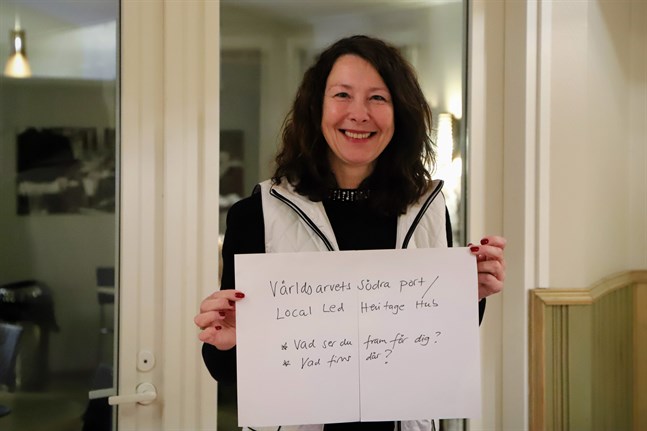 Världsarvets Södra port/
Local Led Heritage Hub
* Vad ser du framför dig?
* Vad finns där?